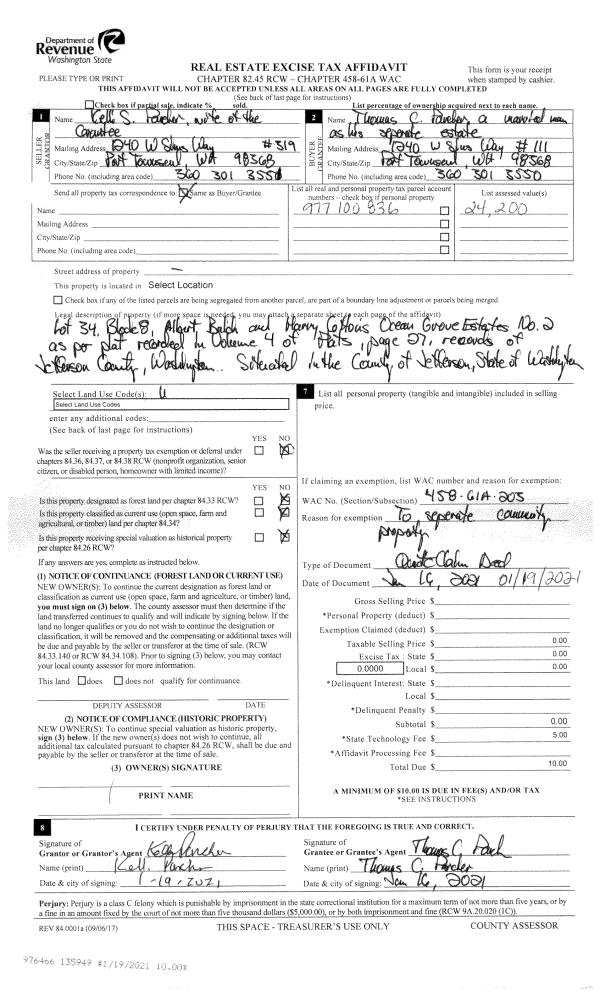 Department of
Revenue
Washington State
PLEASE TYPE OR PRINT
REAL ESTATE EXCISE TAX AFFIDAVIT
CHAPTER 82.45 RCW – CHAPTER 458-61A WAC
This form is your receipt
when stamped by cashier.
THIS AFFIDAVIT WILL NOT BE ACCEPTED UNLESS ALL AREAS ON ALL PAGES ARE FULLY COMPLETED
(See back of last page for instructions)
Check box if partial sale, indicate % sold.
List percentage of ownership acquired next to each name.
1
SELLER
GRANTOR
Name Kelli S. Parcher, wife of the
Grantee
Mailing Address 1240 W Sims Way #319
City/State/Zip Port Townsend, WA 98368
Phone No. (including area code) 360 301 3550
2
BUYER
GRANTEE
Name Thomas C. Parcher, a married man
as his seperate estate
Mailing Address 1240 W Sims Way #111
City/State/Zip Port Townsend, WA 98368
Phone No. (including area code) 360 301 3550
Send all property tax correspondence to: Same as Buyer/Grantee
Name
Mailing Address
City/State/Zip
Phone No. (including area code)
List all real and personal property tax parcel account
numbers – check box if personal property
977 100 836
List assessed value(s)
24,200
Street address of property: —
This property is located in Select Location
Check box if any of the listed parcels are being segregated from another parcel, are part of a boundary line adjustment or parcels being merged.
Legal description of property (if more space is needed, you may attach a separate sheet to each page of the affidavit)
Lot 34, Block 8, Albert Balch and Harry Cottons Ocean Grove Estates No. 2
as per plat recorded in Volume 4 of Plats, page 27, records of
Jefferson County, Washington. Situated in the County of Jefferson, State of Washington
Select Land Use Code(s): U
Select Land Use Codes
enter any additional codes:
(See back of last page for instructions)
YES NO
Was the seller receiving a property tax exemption or deferral under
chapters 84.36, 84.37, or 84.38 RCW (nonprofit organization, senior
citizen, or disabled person, homeowner with limited income)?
YES NO
Is this property designated as forest land per chapter 84.33 RCW?
Is this property classified as current use (open space, farm and
agricultural, or timber) land per chapter 84.34?
Is this property receiving special valuation as historical property
per chapter 84.26 RCW?
If any answers are yes, complete as instructed below.
(1) NOTICE OF CONTINUANCE (FOREST LAND OR CURRENT USE)
NEW OWNER(S): To continue the current designation as forest land or
classification as current use (open space, farm and agriculture, or timber) land,
you must sign on (3) below. The county assessor must then determine if the
land transferred continues to qualify and will indicate by signing below. If the
land no longer qualifies or you do not wish to continue the designation or
classification, it will be removed and the compensating or additional taxes will
be due and payable by the seller or transferor at the time of sale. (RCW
84.33.140 or RCW 84.34.108). Prior to signing (3) below, you may contact
your local county assessor for more information.
This land does does not qualify for continuance.
DEPUTY ASSESSOR DATE
(2) NOTICE OF COMPLIANCE (HISTORIC PROPERTY)
NEW OWNER(S): To continue special valuation as historic property,
sign (3) below. If the new owner(s) does not wish to continue, all
additional tax calculated pursuant to chapter 84.26 RCW, shall be due and
payable by the seller or transferor at the time of sale.
(3) OWNER(S) SIGNATURE
PRINT NAME
7
List all personal property (tangible and intangible) included in selling
price.
If claiming an exemption, list WAC number and reason for exemption:
WAC No. (Section/Subsection) 458-61A-203
Reason for exemption To seperate community
property
Type of Document Quit Claim Deed
Date of Document Jan 16, 2021 01/19/2021
Gross Selling Price $
*Personal Property (deduct) $
Exemption Claimed (deduct) $
Taxable Selling Price $ 0.00
Excise Tax : State $ 0.00
0.0000 Local $ 0.00
*Delinquent Interest: State $
Local $
*Delinquent Penalty $
Subtotal $ 0.00
*State Technology Fee $ 5.00
*Affidavit Processing Fee $
Total Due $ 10.00
A MINIMUM OF $10.00 IS DUE IN FEE(S) AND/OR TAX
*SEE INSTRUCTIONS
8
I CERTIFY UNDER PENALTY OF PERJURY THAT THE FOREGOING IS TRUE AND CORRECT.
Signature of
Grantor or Grantor's Agent Kelli Parcher
Name (print) Kelli Parcher
Date & city of signing: 1-19-2021
Signature of
Grantee or Grantee's Agent Thomas C. Parch
Name (print) Thomas C. Parcher
Date & city of signing: Jan 16, 2021
Perjury: Perjury is a class C felony which is punishable by imprisonment in the state correctional institution for a maximum term of not more than five years, or by
a fine in an amount fixed by the court of not more than five thousand dollars ($5,000.00), or by both imprisonment and fine (RCW 9A.20.020 (1C)).
REV 84 0001a (09/06/17)
THIS SPACE - TREASURER'S USE ONLY
COUNTY ASSESSOR
976466 135949 #1/19/2021 10.00#